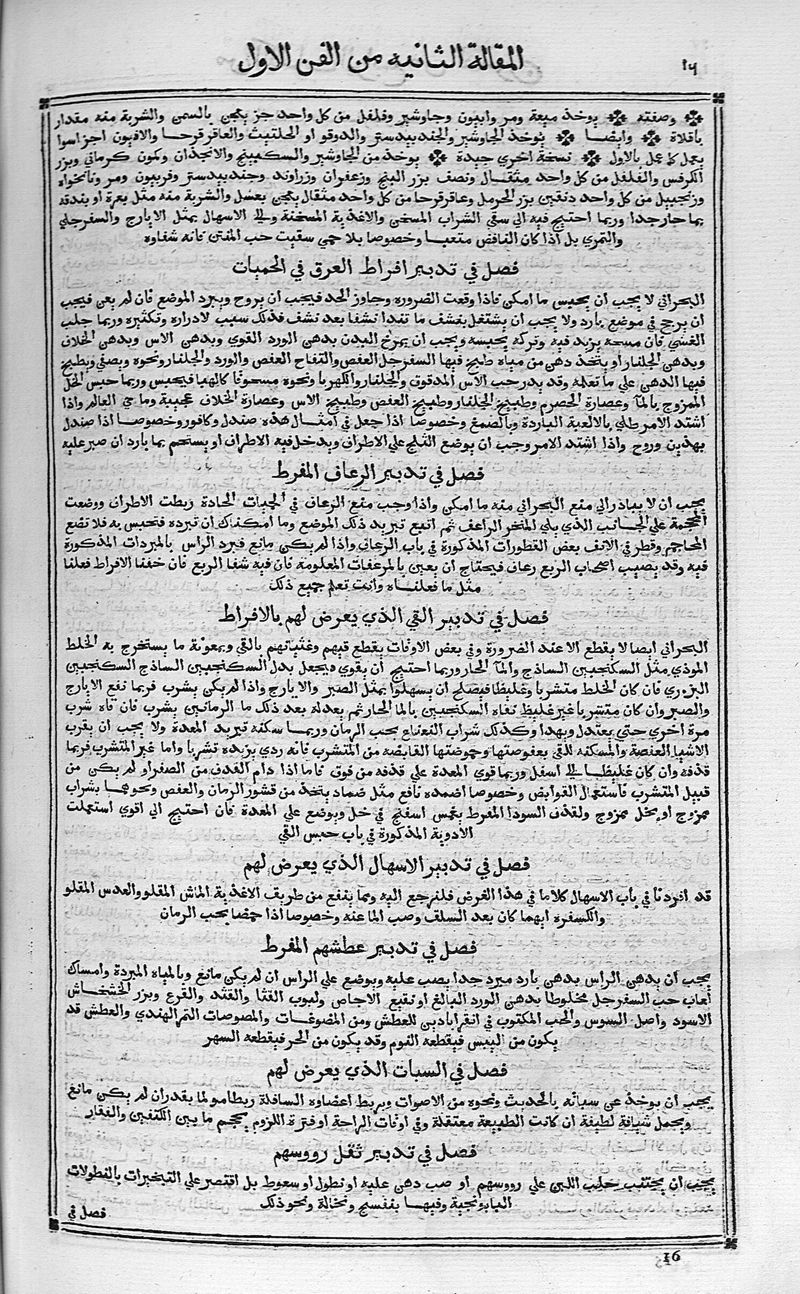 المقالة الثانيه من الفن الاول
١٦
وصفته يوخذ ميعة ومر وافيون وجاوشير وفلفل من كل واحد جز يعجن بالسمن والشربة منه مقدار
باقلاة وايضا يوخذ الجاوشير والجندبيدستر والدوقو او الحلتيت والعاقر قرحا والافيون اجزا سوا
يعمل كما عمل بالاول نسخة اخري جيدة يوخذ من الجاوشير والسكبينج والانجذان وكمون كرماني وبزر
الكرفس والفلفل من كل واحد مثقال ونصف بزر البنج وزعفران وزراوند وجندبيدستر وفربيون ومر ونانخواه
وزنجبيل من كل واحد دنقين بزر الحرمل وعاقرقرحا من كل واحد مثقال يعجن بعسل والشربة منه مثل بعرة او بندقه
بما حار جدا وربما احتيج فيه الي سقي الشراب المسخن والاغذية المسخنة والي الاسهال بمثل الايارج والسفرجلي
والتمري بل اذا كان النافض متعبا وخصوصا بلا حمي سقيت حب المنتن فانه شفاوه
فصل في تدبير افراط العرق في الحميات
البحراني لا يجب ان يحبس ما امكن فاذا وقعت الضروره وجاوز الحد فيجب ان يروح ويبرد الموضع فان لم يغن فيجب
ان يرج في موضع بارد ولا يجب ان يشتغل بنشف ما تندا نشفا بعد نشف فذلك سبب لادراره وتكثيره وربما جلب
الغشي فان مسحه يزيد فيه وتركه يحبسه ويجب ان يمرخ البدن بدهن الورد القوي وبدهن الاس وبدهن الخلاف
وبدهن الجلنار او يتخذ دهن من مياه طبخ فيها السفرجل العفص والتفاح العفص والورد والجلنار ونحوه ويصفي ويطبخ
فيها الدهن علي ما تعلمه وقد يدر حب الاس المدقوق والجلنار والكهربا ونحوه مسحوقا كالهبا فيحبس وربما حبس الخل
الممزوج بالمآ وعصارة الحصرم وطبيخ الجلنار وطبيخ العفص وطبيخ الاس وعصارة الخلاف عجيبة وما حي العالم واذا
اشتد الامر طلي بالالعبة الباردة وبالصمغ وخصوصا اذا جعل في امثال هذه صندل وكافور وخصوصا اذا صندل
بهذين وروح واذا اشتد الامر وجب ان يوضع الثلج علي الاطراف ويدخل فيه الاطراف او يستحم بما بارد ان صبر عليه
فصل في تدبير الرعاف المفرط
يجب ان لا يبادر الي منع البحراني منه ما امكن واذا وجب منع الرعاف في الحميات الحادة ربطت الاطراف ووضعت
المحجمة علي الجانب الذي يلي المنخر الراعف ثم اتبع تبريد ذلك الموضع وما امكنك ان تبرده فتحبس به فلا تضع
المحاجم وقطر في الانف بعض القطورات المذكورة في باب الرعاف واذا لم يكن مانع فبرد الراس بالمبردات المذكورة
فيه وقد يصيب اصحاب الربع رعاف فيحتاج ان يعين بالمرعفات المعلومه فان فيه شفا الربع فان خفنا الافراط فعلنا
مثل ما فعلناه وانت تعلم جميع ذلك
فصل في تدبير القي الذي يعرض لهم بالافراط
البحراني ايضا لا يقطع الا عند الضرورة وفي بعض الاوقات يقطع قيهم وغثيانهم بالقي وبمعونة ما يستخرج به الخلط
الموذي مثل السكنجبين الساذج والمآ الحار وربما احتيج ان يقوي فيجعل بدل السكنجبين الساذج السكنجبين
البزري فان كان الخلط متشربا وغليظا فيصلح ان يسهلوا بمثل الصبر والايارج واذا لم يكن يشرب فربما نفع الايارج
والصبر وان كان متشربا غير غليظ نفاه السكنجبين بالما الحار ثم يعدله بعد ذلك ما الرمانين يشرب فان قاه شرب
مرة اخري حتي يعتدل ويهدا وكذلك شراب النعناع بحب الرمان وربما سكنه تبريد المعدة ولا يجب ان يقرب
الاشيا العفصة والمسكنه للقي بعفوصتها وحموضتها القابضه من المتشرب فانه ردي يزيده تشربا واما غير المتشرب فربما
قذفه وان كان غليظا الي اسفل وربما قوي المعدة علي قذفه من فوق فاما اذا دام القذف من الصفرا او لم يكن من
قبيل المتشرب فاستعمال القوابض وخصوصا اضمده نافع مثل ضماد يتخذ من قشور الرمان والعفص ونحوهما بشراب
ممزوج او بخل ممزوج ولقذف السودا المفرط يغمس اسفنج في خل ويوضع علي المعدة فان احتيج الي اقوي استعملت
الادوية المذكورة في باب حبس القي
فصل في تدبير الاسهال الذي يعرض لهم
قد افردنا في باب الاسهال كلاما في هذا الغرض فلنرجع اليه ومما ينفع من طريف الاغذية الماش المقلو والعدس المقلو
والكسفره ايهما كان بعد السلق وصب الما عنه وخصوصا اذا حمضا بحب الرمان
فصل في تدبير عطشهم المفرط
يجب ان يدهن الراس بدهن بارد مبرد جدا يصب عليه ويوضع علي الراس ان لم يكن مانع وبالمياه المبردة وامساك
لعاب حب السفرجل مخلوطا بدهن الورد البالغ او نقيع الاجاص ولبوب القثا والقثد والقرع وبزر الخشخاش
الاسود واصل السوس والحب المكتوب في انقراباذين للعطش ومن المضوغات والمصوصات التمر الهندي والعطش قد
يكون من اليبس فيقطعه النوم وقد يكون من الحر فيقطعه السهر
فصل في السبات الذي يعرض لهم
يجب ان يوخذ عن سباته بالحديث ونحوه من الاصوات ويربط اعضاوه السافلة ربطا مولما بقدران لم يكن مانع
ويحمل شيافة لطيفة ان كانت الطبيعة معتقلة وفي اوقات الراحة او فترة اللزوم يحجم ما بين الكتفين والفقار
فصل في تدبير ثقل رووسهم
يجب ان يجتنب حلب اللبن علي رووسهم او صب دهن عليه او نطول او سعوط بل اقتصر علي التبخيرات بالنطولات
البابونجية وفيها بنفسج ونخالة ونحو ذلك
فصل في
16